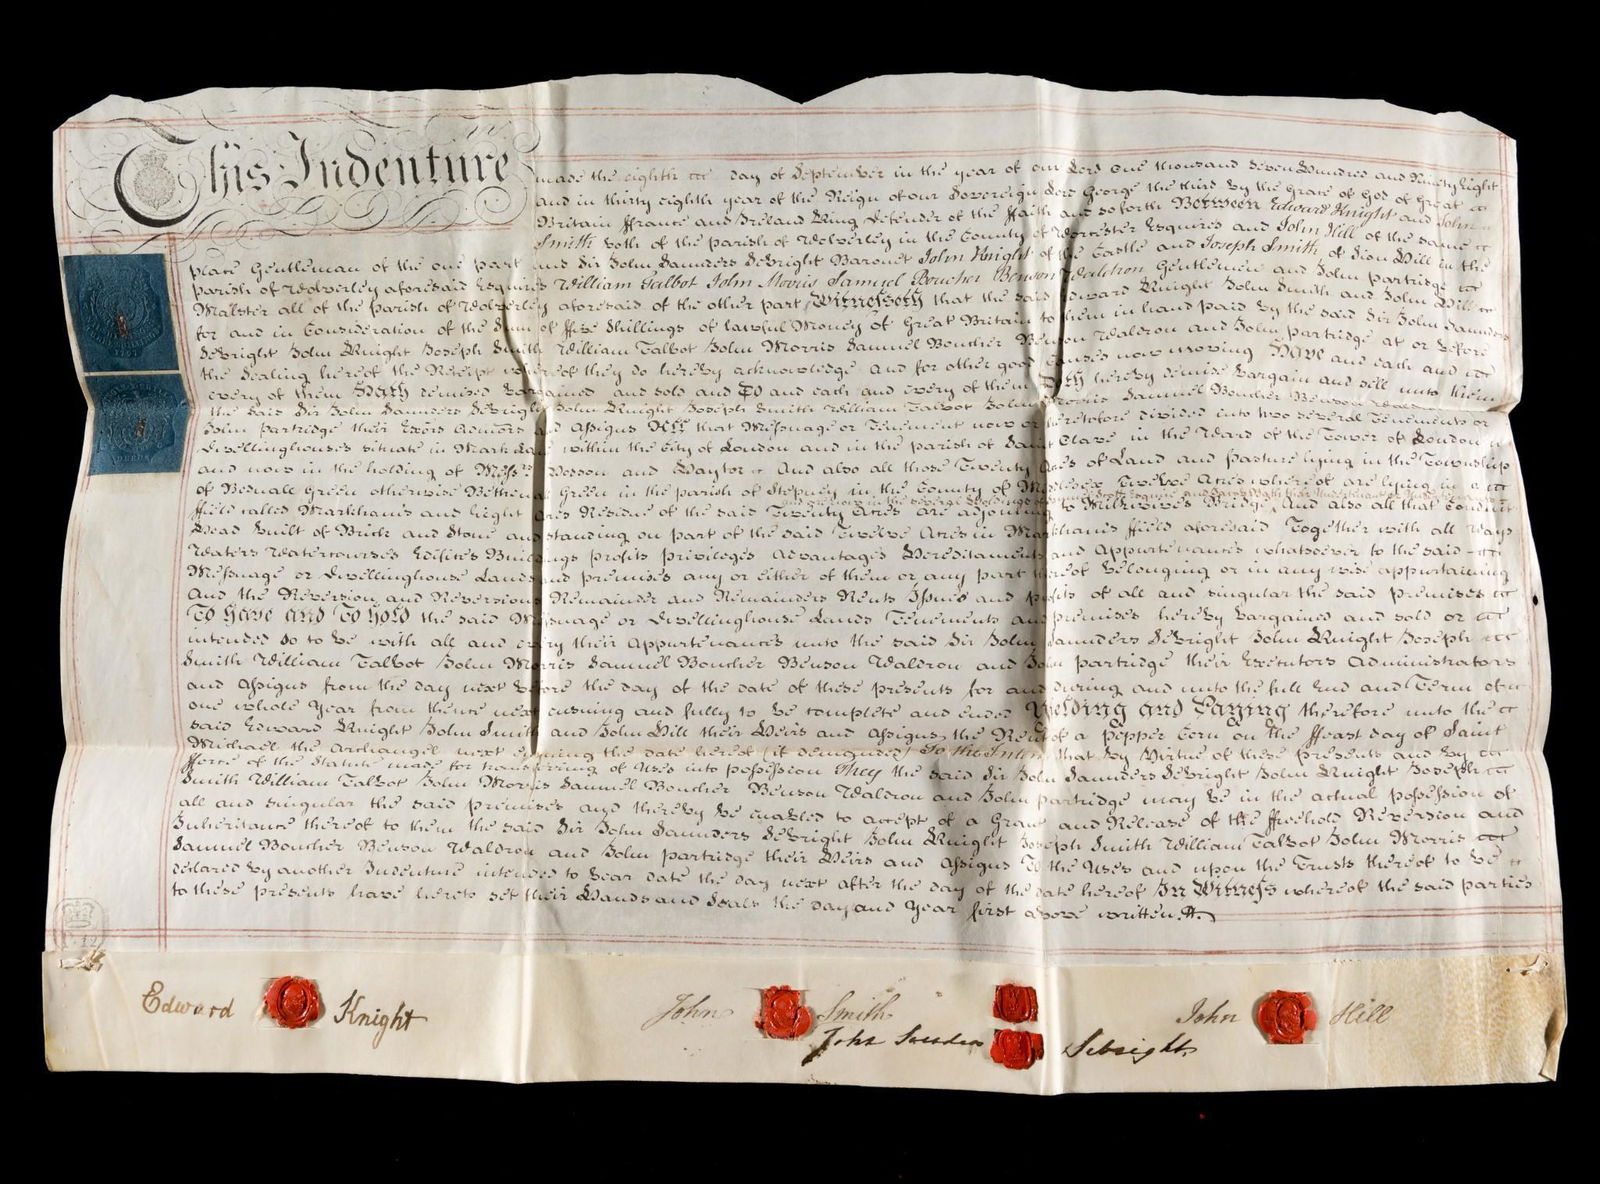 This Indenture made the eighth day of September in the year of our Lord one thousand seven hundred and Ninety Eight
and in thirty eighth year of the Reign of our Sovereign Lord George the third by the Grace of God of Great
Britain ffrance and Ireland King Defender of the ffaith and so forth Between Edward Knight and John
Smith both of the parish of Wolverley in the County of Worcester Esquires and John Hill of the same
place Gentleman of the one part and Sir John Saunders Sebright Baronet John Knight of the Castle and Joseph Smith of Sion Hill in the
parish of Wolverley aforesaid Esquires William Talbot John Morris Samuel Boucher Benson Waldron Gentlemen and John partridge
Malster all of the parish of Wolverley aforesaid of the other part Witnesseth that the said Edward Knight John Smith and John Hill
for and in Consideration of the Sum of ffive Shillings of lawful Money of Great Britain to them in hand paid by the said Sir John Saunders
Sebright John Knight Joseph Smith William Talbot John Morris Samuel Boucher Benson Waldron and John partridge at or before
the Sealing hereof the Receipt whereof they do hereby acknowledge and for other good Causes now moving Have and each and
every of them Hath demised bargained and sold and Do and each and every of them Doth hereby demise bargain and sell unto them
the said Sir John Saunders Sebright John Knight Joseph Smith William Talbot John Morris Samuel Boucher Benson Waldron and
John partridge their Exors Admors and Assigns All that Messuage or Tenement now or heretofore divided into two several Tenements or
Dwellinghouses situate in Mark Lane within the City of London and in the parish of Saint Olave in the Ward of the Tower of London
and now in the holding of Messrs. Dobson and Hayter And also all those Twenty Acres of Land and pasture lying in the Township
of Bednall Green otherwise Bethenal Green in the parish of Stepney in the County of Middlesex Twelve Acres whereof are lying in a
ffield called Markhams and Eight Acres Residue of the said Twenty Acres are adjoining to Bridge And also all that Conduit
and are now in the several holdings of
Head built of Brick and Stone and standing on part of the said Twelve Acres in Markhams ffield aforesaid Together with all Ways
Waters Watercourses Edifices Buildings profits privileges Advantages Hereditaments and Appurtenances whatsoever to the said
Messuage or Dwellinghouse Lands and premises any or either of them or any part thereof belonging or in any wise appertaining
And the Reversion and Reversions Remainder and Remainders Rents Issues and profits of all and singular the said premises
To Have and To Hold the said Messuage or Dwellinghouse Lands Tenements and premises hereby bargained and sold or
intended so to be with all and every their Appurtenances unto the said Sir John Saunders Sebright John Knight Joseph
Smith William Talbot John Morris Samuel Boucher Benson Waldron and John partridge their Executors Administrators
and Assigns from the day next before the day of the date of these presents for and during and unto the full End and Term of
one whole Year from thence next ensuing and fully to be complete and ended Yielding and Paying therefore unto the
said Edward Knight John Smith and John Hill their Heirs and Assigns the Rent of a Pepper Corn on the ffeast day of Saint
Michael the Archangel next ensuing the date hereof (if demanded) To the Intent that by Virtue of these presents and by
fforce of the Statute made for transferring of Uses into possession They the said Sir John Saunders Sebright John Knight Joseph
Smith William Talbot John Morris Samuel Boucher Benson Waldron and John partridge may be in the actual possession of
all and singular the said premises and thereby be enabled to accept of a Grant and Release of the ffreehold Reversion and
Inheritance thereof to them the said Sir John Saunders Sebright John Knight Joseph Smith William Talbot John Morris
Samuel Boucher Benson Waldron and John partridge their Heirs and Assigns To the Uses and upon the Trusts thereof to be
declared by another Indenture intended to bear date the day next after the day of the date hereof In Witness whereof the said parties
to these presents have hereto set their Hands and Seals the day and Year first above written.
Edward Knight John Smith John Hill
John Saunders Sebright